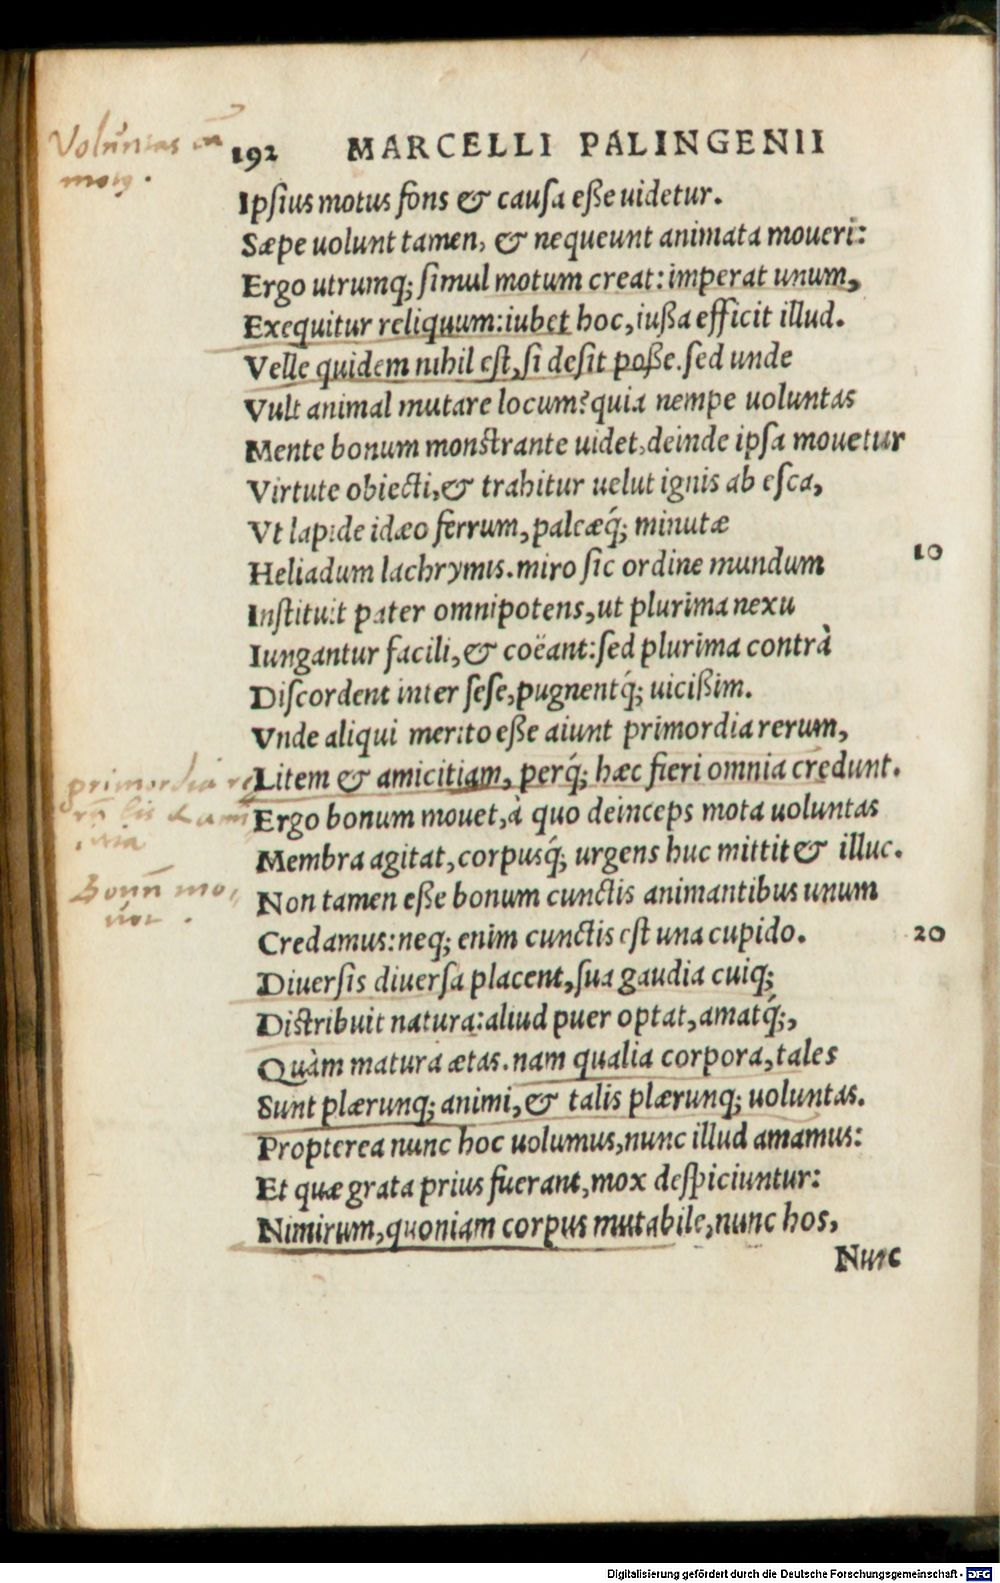 Voluntas cā
motꝯ.
192 MARCELLI PALINGENII
Ipſius motus fons & cauſa eſſe uidetur.
Sæpe uolunt tamen, & nequeunt animata moueri:
Ergo utrumq; ſimul motum creat: imperat unum,
Exequitur reliquum: iubet hoc, iuſſa efficit illud.
Velle quidem nihil eſt, ſi deſit poſſe. ſed unde
Vult animal mutare locum? quia nempe uoluntas
Mente bonum monſtrante uidet, deinde ipſa mouetur
Virtute obiecti, & trahitur uelut ignis ab eſca,
Vt lapide idæo ferrum, paleæq́; minutæ
Heliadum lachrymis. miro ſic ordine mundum 10
Inſtituit pater omnipotens, ut plurima nexu
Iungantur facili, & coëant: ſed plurima contrà
Diſcordent inter ſeſe, pugnentq́; uiciſſim.
Vnde aliqui merito eſſe aiunt primordia rerum,
primordia re
Litem & amicitiam, perq́; hæc fieri omnia credunt.
rū lis & ami
Ergo bonum mouet, à quo deinceps mota uoluntas
citia
Membra agitat, corpusq́; urgens huc mittit & illuc.
Bonū mo-
Non tamen eſſe bonum cunctis animantibus unum
uet.
Credamus: neq; enim cunctis eſt una cupido. 20
Diuerſis diuerſa placent, ſua gaudia cuiq;
Diſtribuit natura: aliud puer optat, amatq́;,
Quàm matura ætas. nam qualia corpora, tales
Sunt plærunq; animi, & talis plærunq; uoluntas.
Propterea nunc hoc uolumus, nunc illud amamus:
Et quæ grata prius fuerant, mox deſpiciuntur:
Nimirum, quoniam corpus mutabile, nunc hos,
Nunc
Digitalisierung gefördert durch die Deutsche Forschungsgemeinschaft - DFG